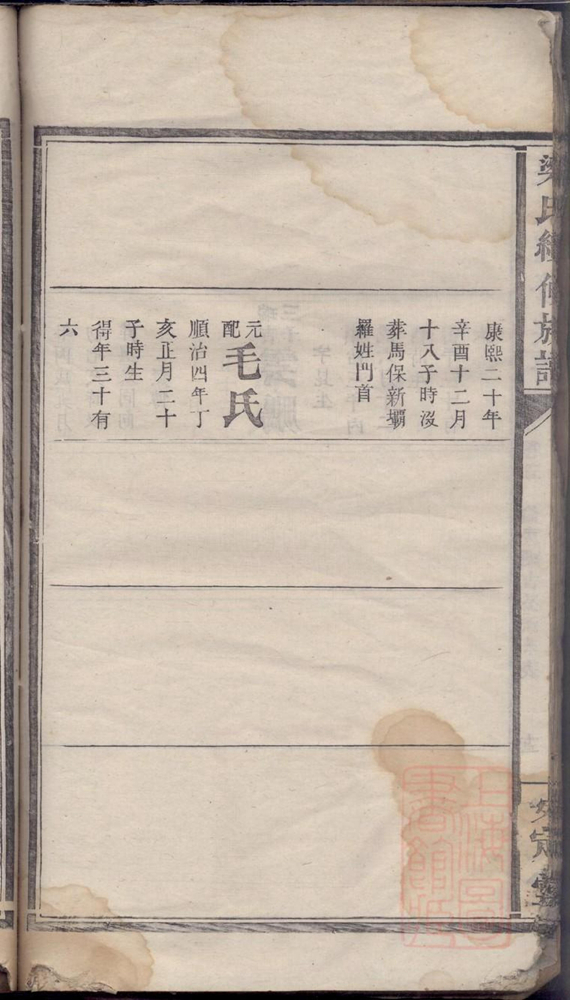 梁氏續修族譜
安定堂
康熙二十年
辛酉十二月
十八子時沒
葬馬保新壩
羅姓門首
元配毛氏
順治四年丁
亥正月二十
子時生
得年三十有
六